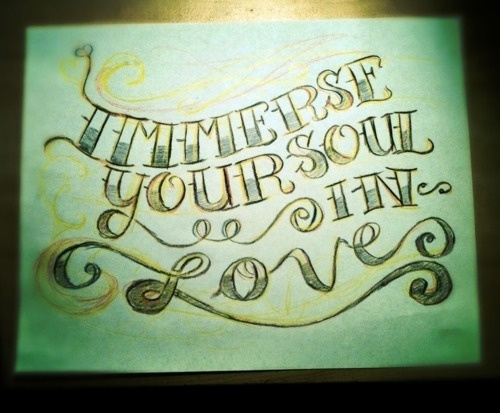 IMMERSE
YOUR SOUL
IN
Love